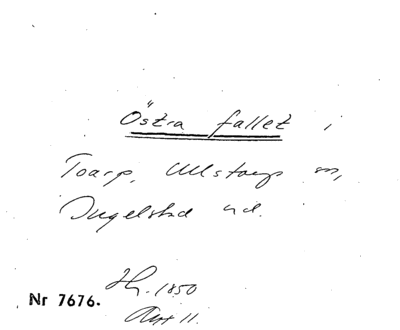 Östra fallet i
Toarp, Ulstorp m,
Ingelstad hd.
Hg. 1850
Nr 7676.
Akt 11.